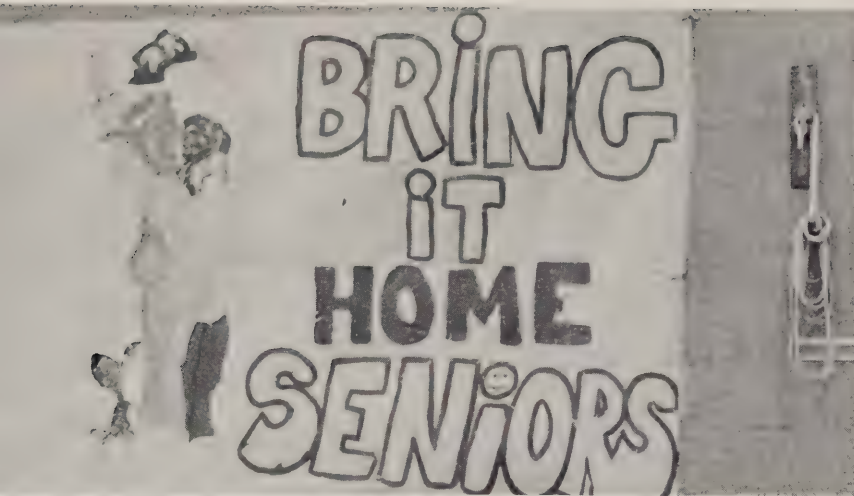 BRiNG
iT
HOME
SENiORS